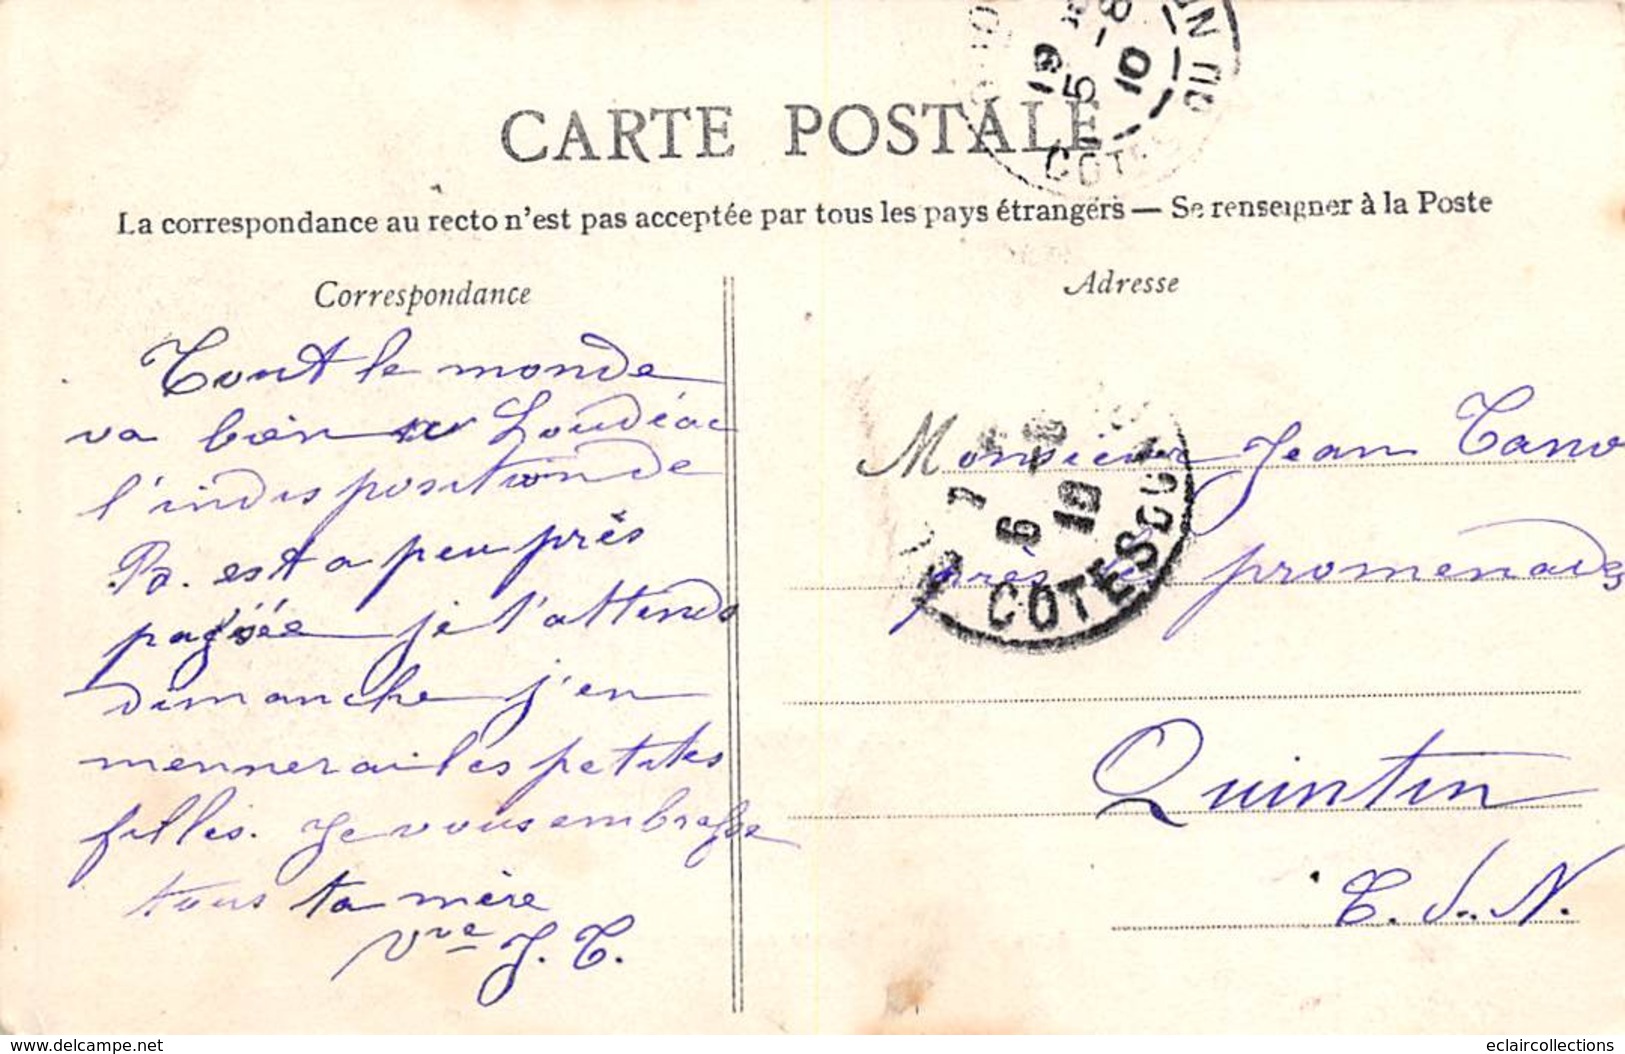 CARTE POSTALE
La correspondance au recto n'est pas acceptée par tous les pays étrangers — Se renseigner à la Poste
Correspondance
Tout le monde
va bien Loudéac
l'indisposition de
est a peu près
passée je t'attends
dimanche j'en
mennerai les petites
filles. Je vous embrasse
tous ta mère
Vve J. T.
Adresse
Monsieur Jean Tano
près les promenades
Quintin
C. d. N.
19
5 -8
10
COTES DU N
6
10
COTES DU
delcampe.net
eclaircollections